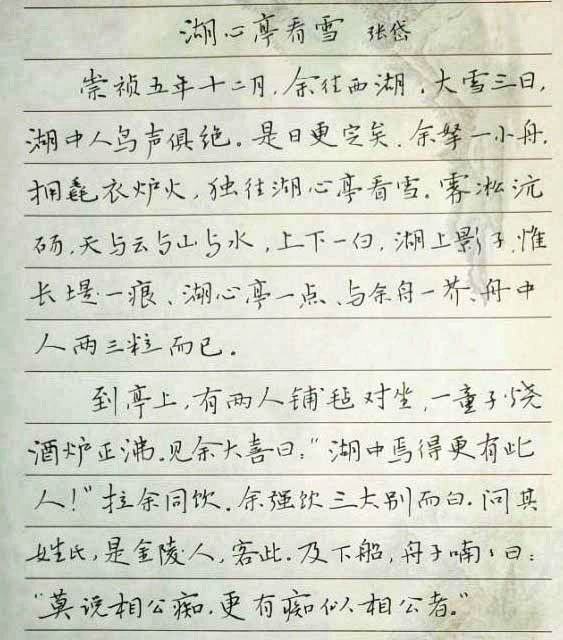 湖心亭看雪 张岱
崇祯五年十二月,余往西湖。大雪三日,
湖中人鸟声俱绝。是日更定矣,余拏一小舟,
拥毳衣炉火,独往湖心亭看雪。雾凇沆
砀,天与云与山与水,上下一白,湖上影子,惟
长堤一痕、湖心亭一点、与余舟一芥、舟中
人两三粒而已。
到亭上,有两人铺毡对坐,一童子烧
酒炉正沸。见余大喜曰:"湖中焉得更有此
人!"拉余同饮。余强饮三大别而白。问其
姓氏,是金陵人,客此。及下船,舟子喃:曰:
"莫说相公痴,更有痴似相公者。"